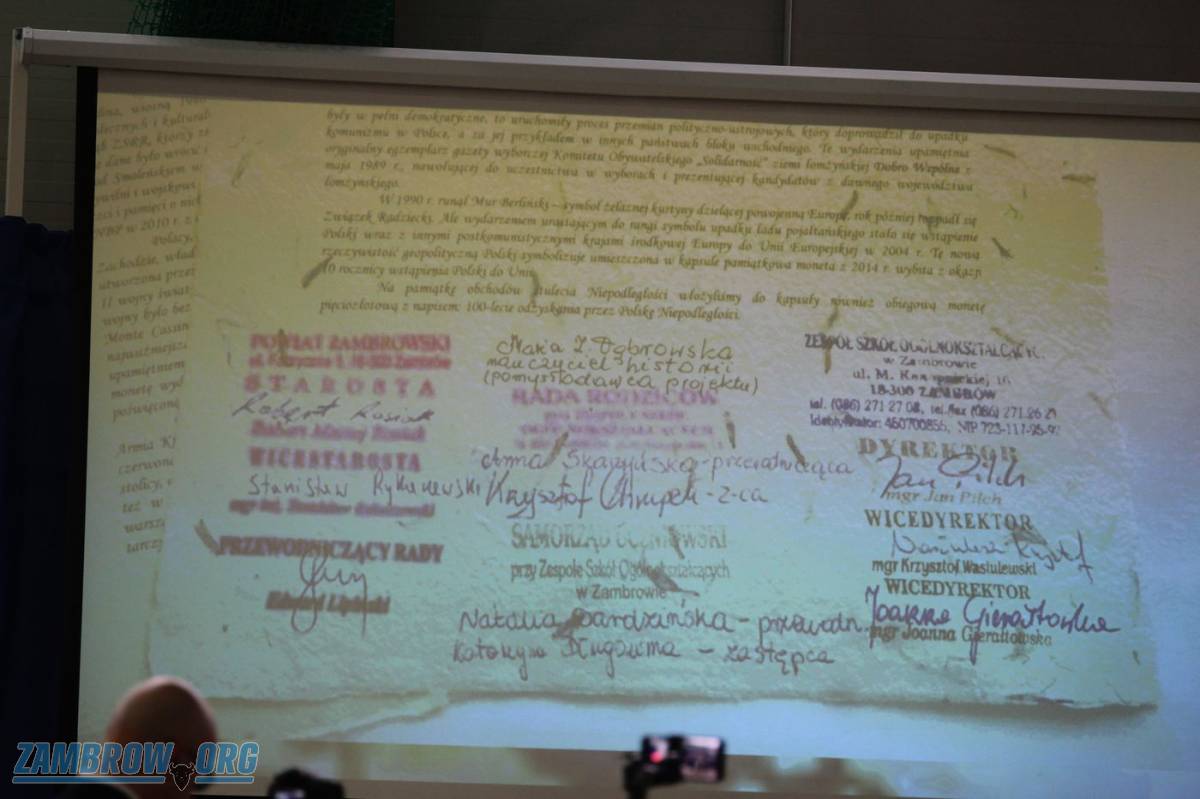 lecznych i kultural
ZSRR, którzy
dane było wrócić
Smoleńskiem
cywilni i wojskowi
i pamięci o nich
NBP w 2010 r. z
Polacy,
Zachodzie, wład
utworzona przez
II wojny świat
wojny było bez
Monte Cassin
upamiętnien
monetę wyd
poświęconą
Armia K
czerwone
stolicy,
też w
warsz
tarcz
były w pełni demokratyczne, to uruchomiły proces przemian polityczno-ustrojowych, który doprowadził do upadku
komunizmu w Polsce, a za jej przykładem w innych państwach bloku wschodniego. Te wydarzenia upamiętnia
oryginalny egzemplarz gazety wyborczej Komitetu Obywatelskiego „Solidarność” ziemi łomżyńskiej Dobro Wspólne z
maja 1989 r., nawołującej do uczestnictwa w wyborach i prezentującej kandydatów z dawnego województwa
łomżyńskiego.
W 1990 r. runął Mur Berliński – symbol żelaznej kurtyny dzielącej powojenną Europę, rok później rozpadł się
Związek Radziecki. Ale wydarzeniem urastającym do rangi symbolu upadku ładu pojałtańskiego stało się wstąpienie
Polski wraz z innymi postkomunistycznymi krajami środkowej Europy do Unii Europejskiej w 2004 r. Tę nową
rzeczywistość geopolityczną Polski symbolizuje umieszczona w kapsule pamiątkowa moneta z 2014 r. wybita z okazji
10 rocznicy wstąpienia Polski do Unii
Na pamiątkę obchodów stulecia Niepodległości włożyliśmy do kapsuły również obiegową monetę
pięciozłotową z napisem: 100-lecie odzyskania przez Polskę Niepodległości.
POWIAT ZAMBROWSKI
ul. Fabryczna 3, 18-300 Zambrów
STAROSTA
Robert Rosiak
Robert Maciej Rosiak
WICESTAROSTA
Stanisław Rykaczewski
mgr inż. Stanisław Rykaczewski
PRZEWODNICZĄCY RADY
Maria Z. Dąbrowska
nauczyciel historii
(pomysłodawca projektu)
RADA RODZICÓW
Anna Skarzyńska - przewodnicząca
Krzysztof Chrupek - z-ca
SAMORZĄD UCZNIOWSKI
przy Zespole Szkół Ogólnokształcących
w Zambrowie
Natalia Bardzińska - przewodn.
- zastępca
ZESPÓŁ SZKÓŁ OGÓLNOKSZTAŁCĄCYCH
w Zambrowie
ul. M. Konopnickiej
18-300 ZAMBRÓW
tel. (086) 271 27 08, tel./fax (086) 271 26 21
Identyfikator: 450700855, NIP 723-117-25-97
DYREKTOR
Jan Pilch
mgr Jan Pilch
WICEDYREKTOR
mgr Krzysztof Wasiulewski
WICEDYREKTOR
Joanna Gierałtowska
mgr Joanna Gierałtowska
ZAMBROW.ORG